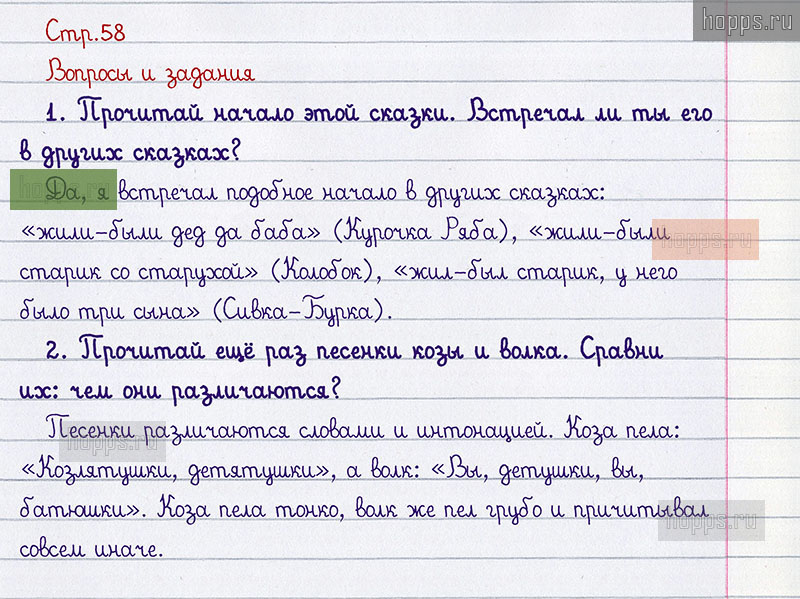 hopps.ru
Стр.58
Вопросы и задания
1. Прочитай начало этой сказки. Встречал ли ты его
в других сказках?
Да, я встречал подобное начало в других сказках:
hopps.ru
«жили-были дед да баба» (Курочка Ряба), «жили-были
hopps.ru
старик со старухой» (Колобок), «жил-был старик, у него
было три сына» (Сивка-Бурка).
2. Прочитай ещё раз песенки козы и волка. Сравни
их: чем они различаются?
Песенки различаются словами и интонацией. Коза пела:
hopps.ru
«Козлятушки, детятушки», а волк: «Вы, детушки, вы,
батюшки». Коза пела тонко, волк же пел грубо и причитывал
hopps.ru
совсем иначе.